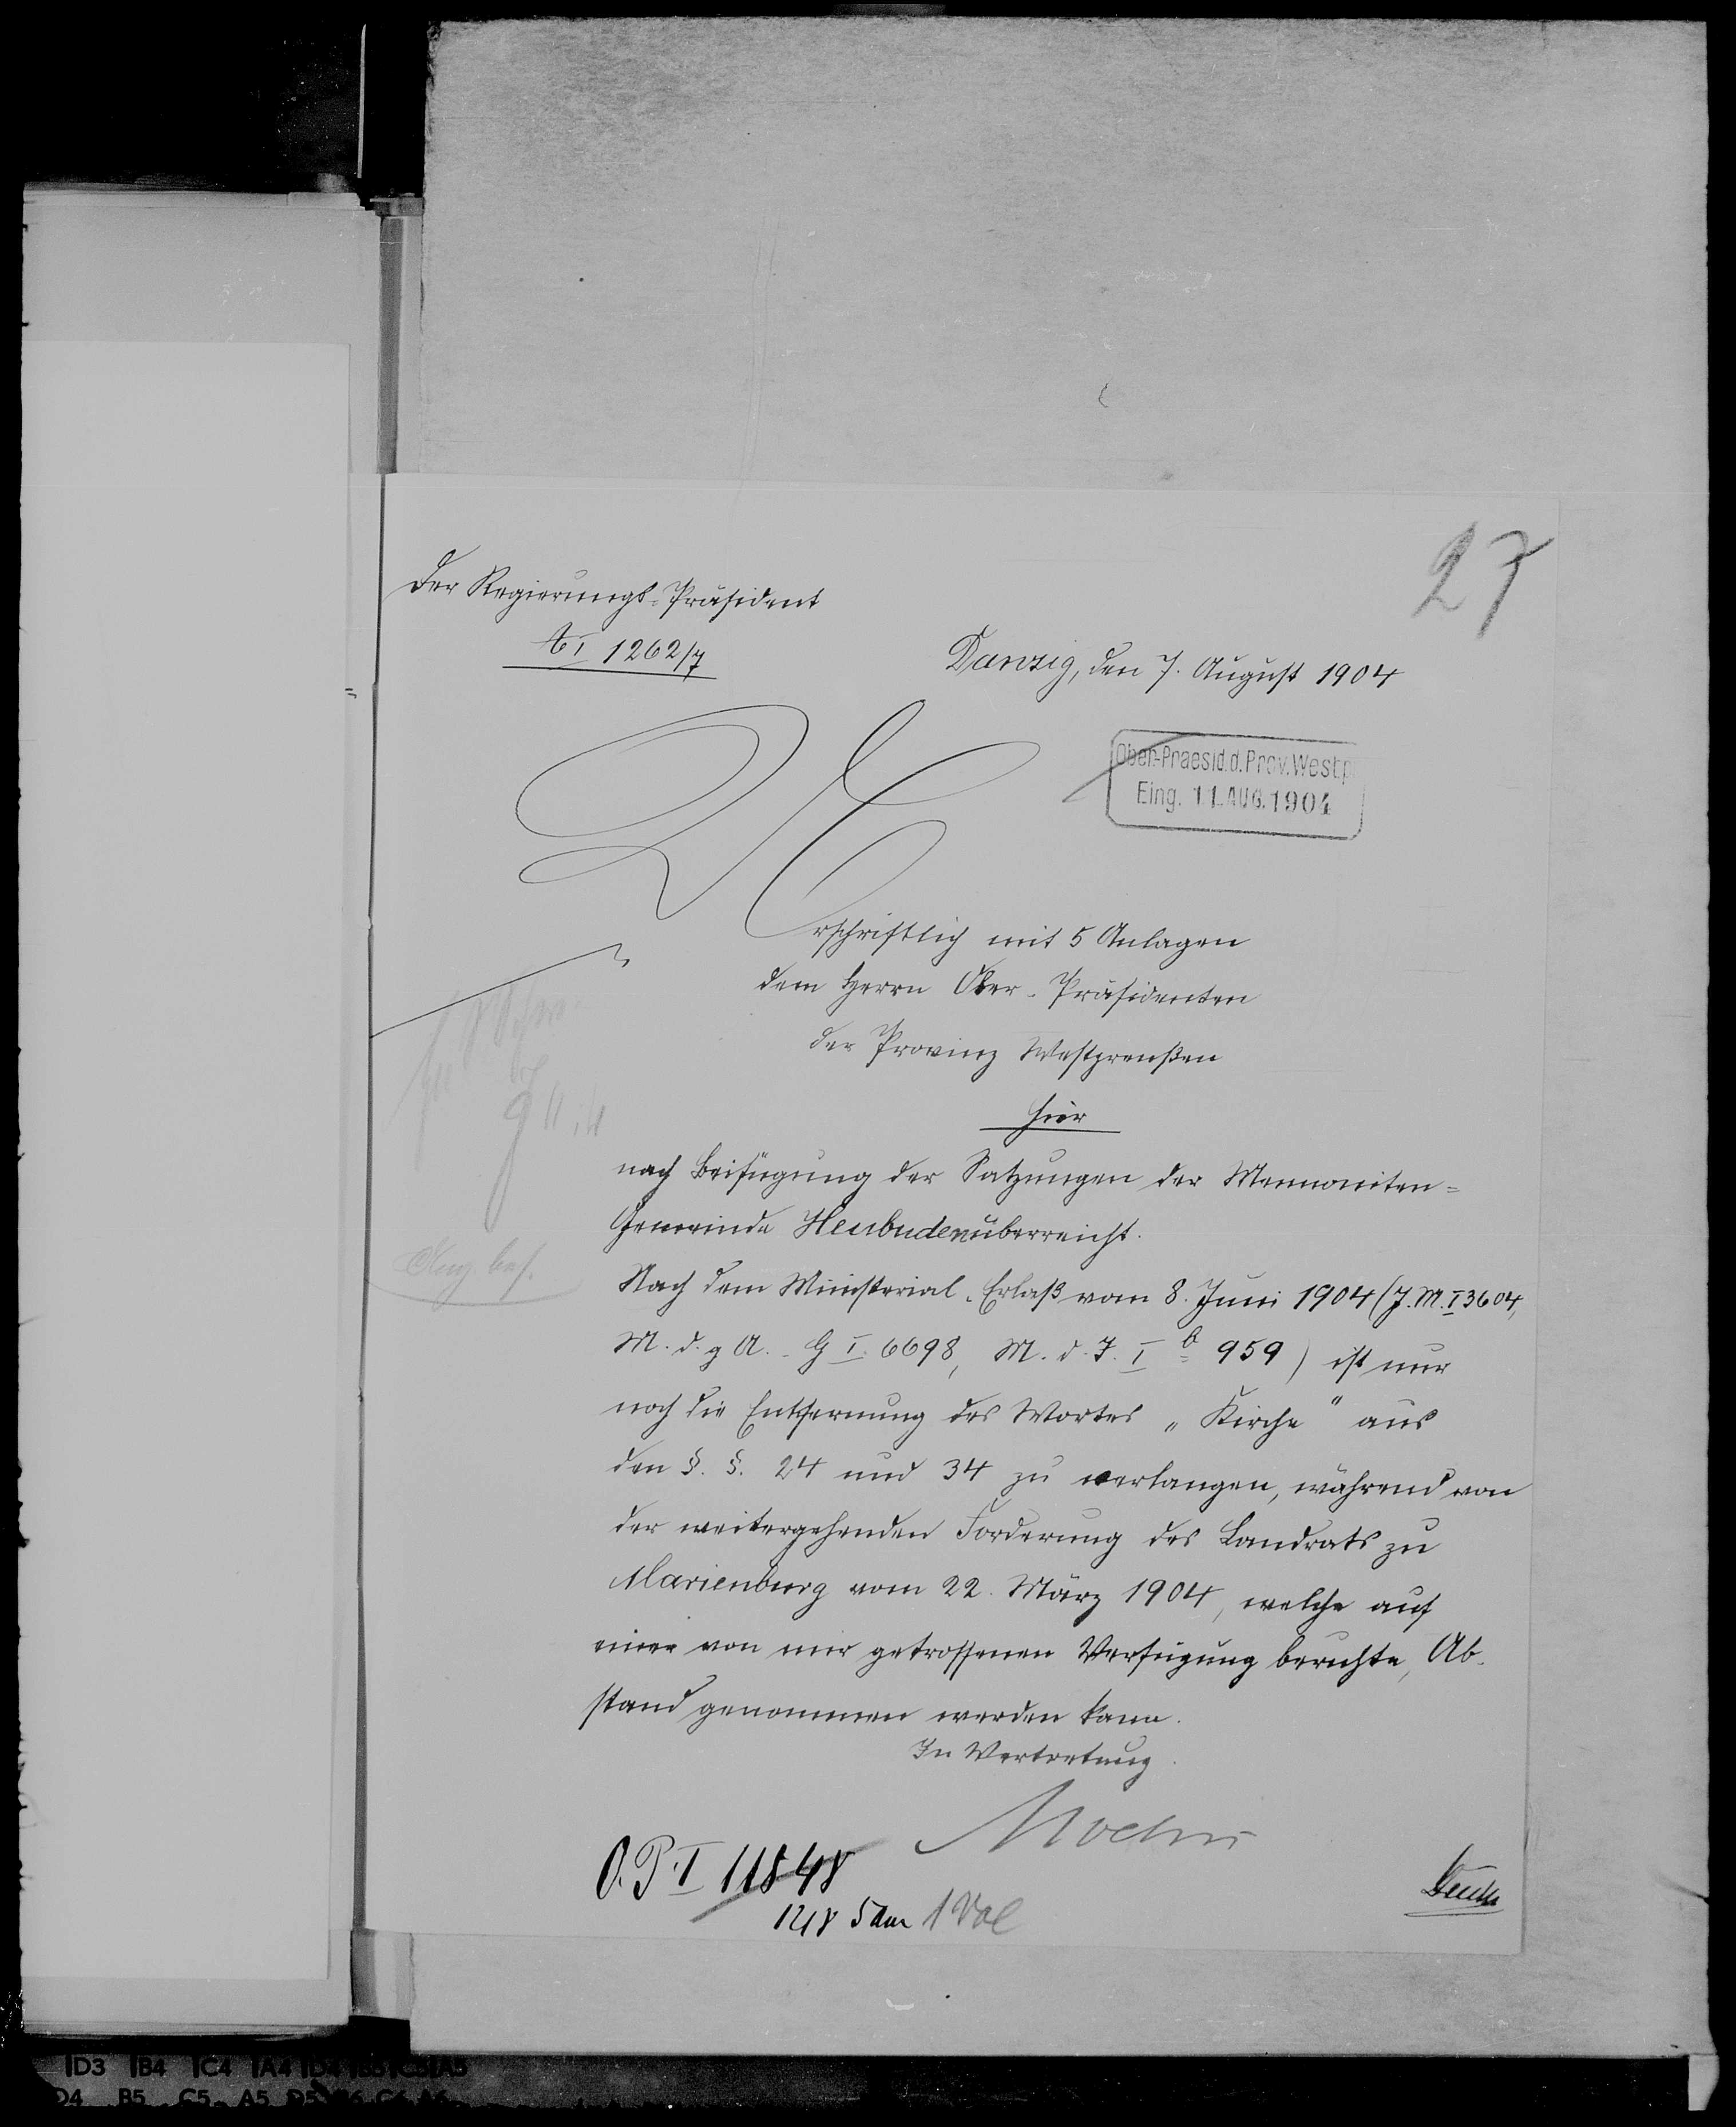 27
Der Regierungs-Präsident
A I 1262/7
Danzig, den 7. August 1904
Ober-Praesid.d.Prov.Westp.
Eing. 11.AUG.1904
Urschriftlich mit 5 Anlagen
dem Herrn Ober-Präsidenten
der Provinz Westpreußen
hier
nach Beifügung der Satzungen der Mennoniten=
Gemeinde Heubuden überreicht.
Nach dem Ministerial-Erlaß vom 8. Juni 1904 (J.M. I 3604,
M. d. g A. G I 6698, M. d. J. I b 959) ist nur
noch die Entfernung des Wortes „Kirche" aus
den §. §. 24 und 34 zu verlangen, während von
der weitergehenden Forderung des Landrats zu
Marienburg vom 22. März 1904, welche auf
einer von mir getroffenen Verfügung beruhte, Ab-
stand genommen werden kann.
In Vertretung.
O.P. I 11848
1 Vol
D3 B4 C4 A4 D4
D4 B5 C5 A5 D5